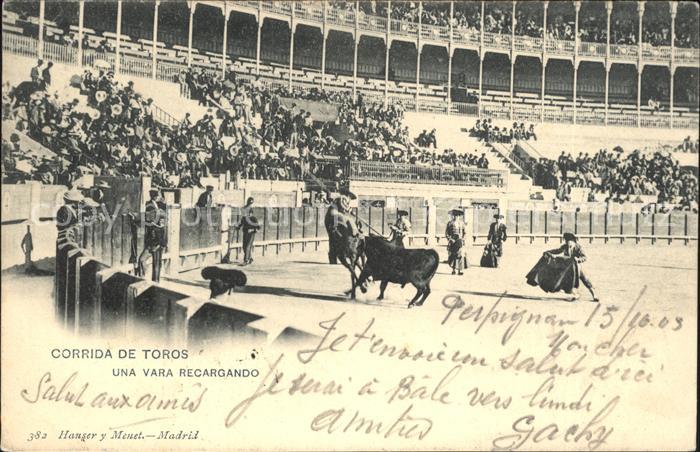 CORRIDA DE TOROS
UNA VARA RECARGANDO
Perpignan 15/10.03
Mon cher
Je t'envoie un salut d'ici
Je serai à Bâle vers lundi
Salut aux amis
Amitiés
Gachy
382 Hauser y Menet.—Madrid